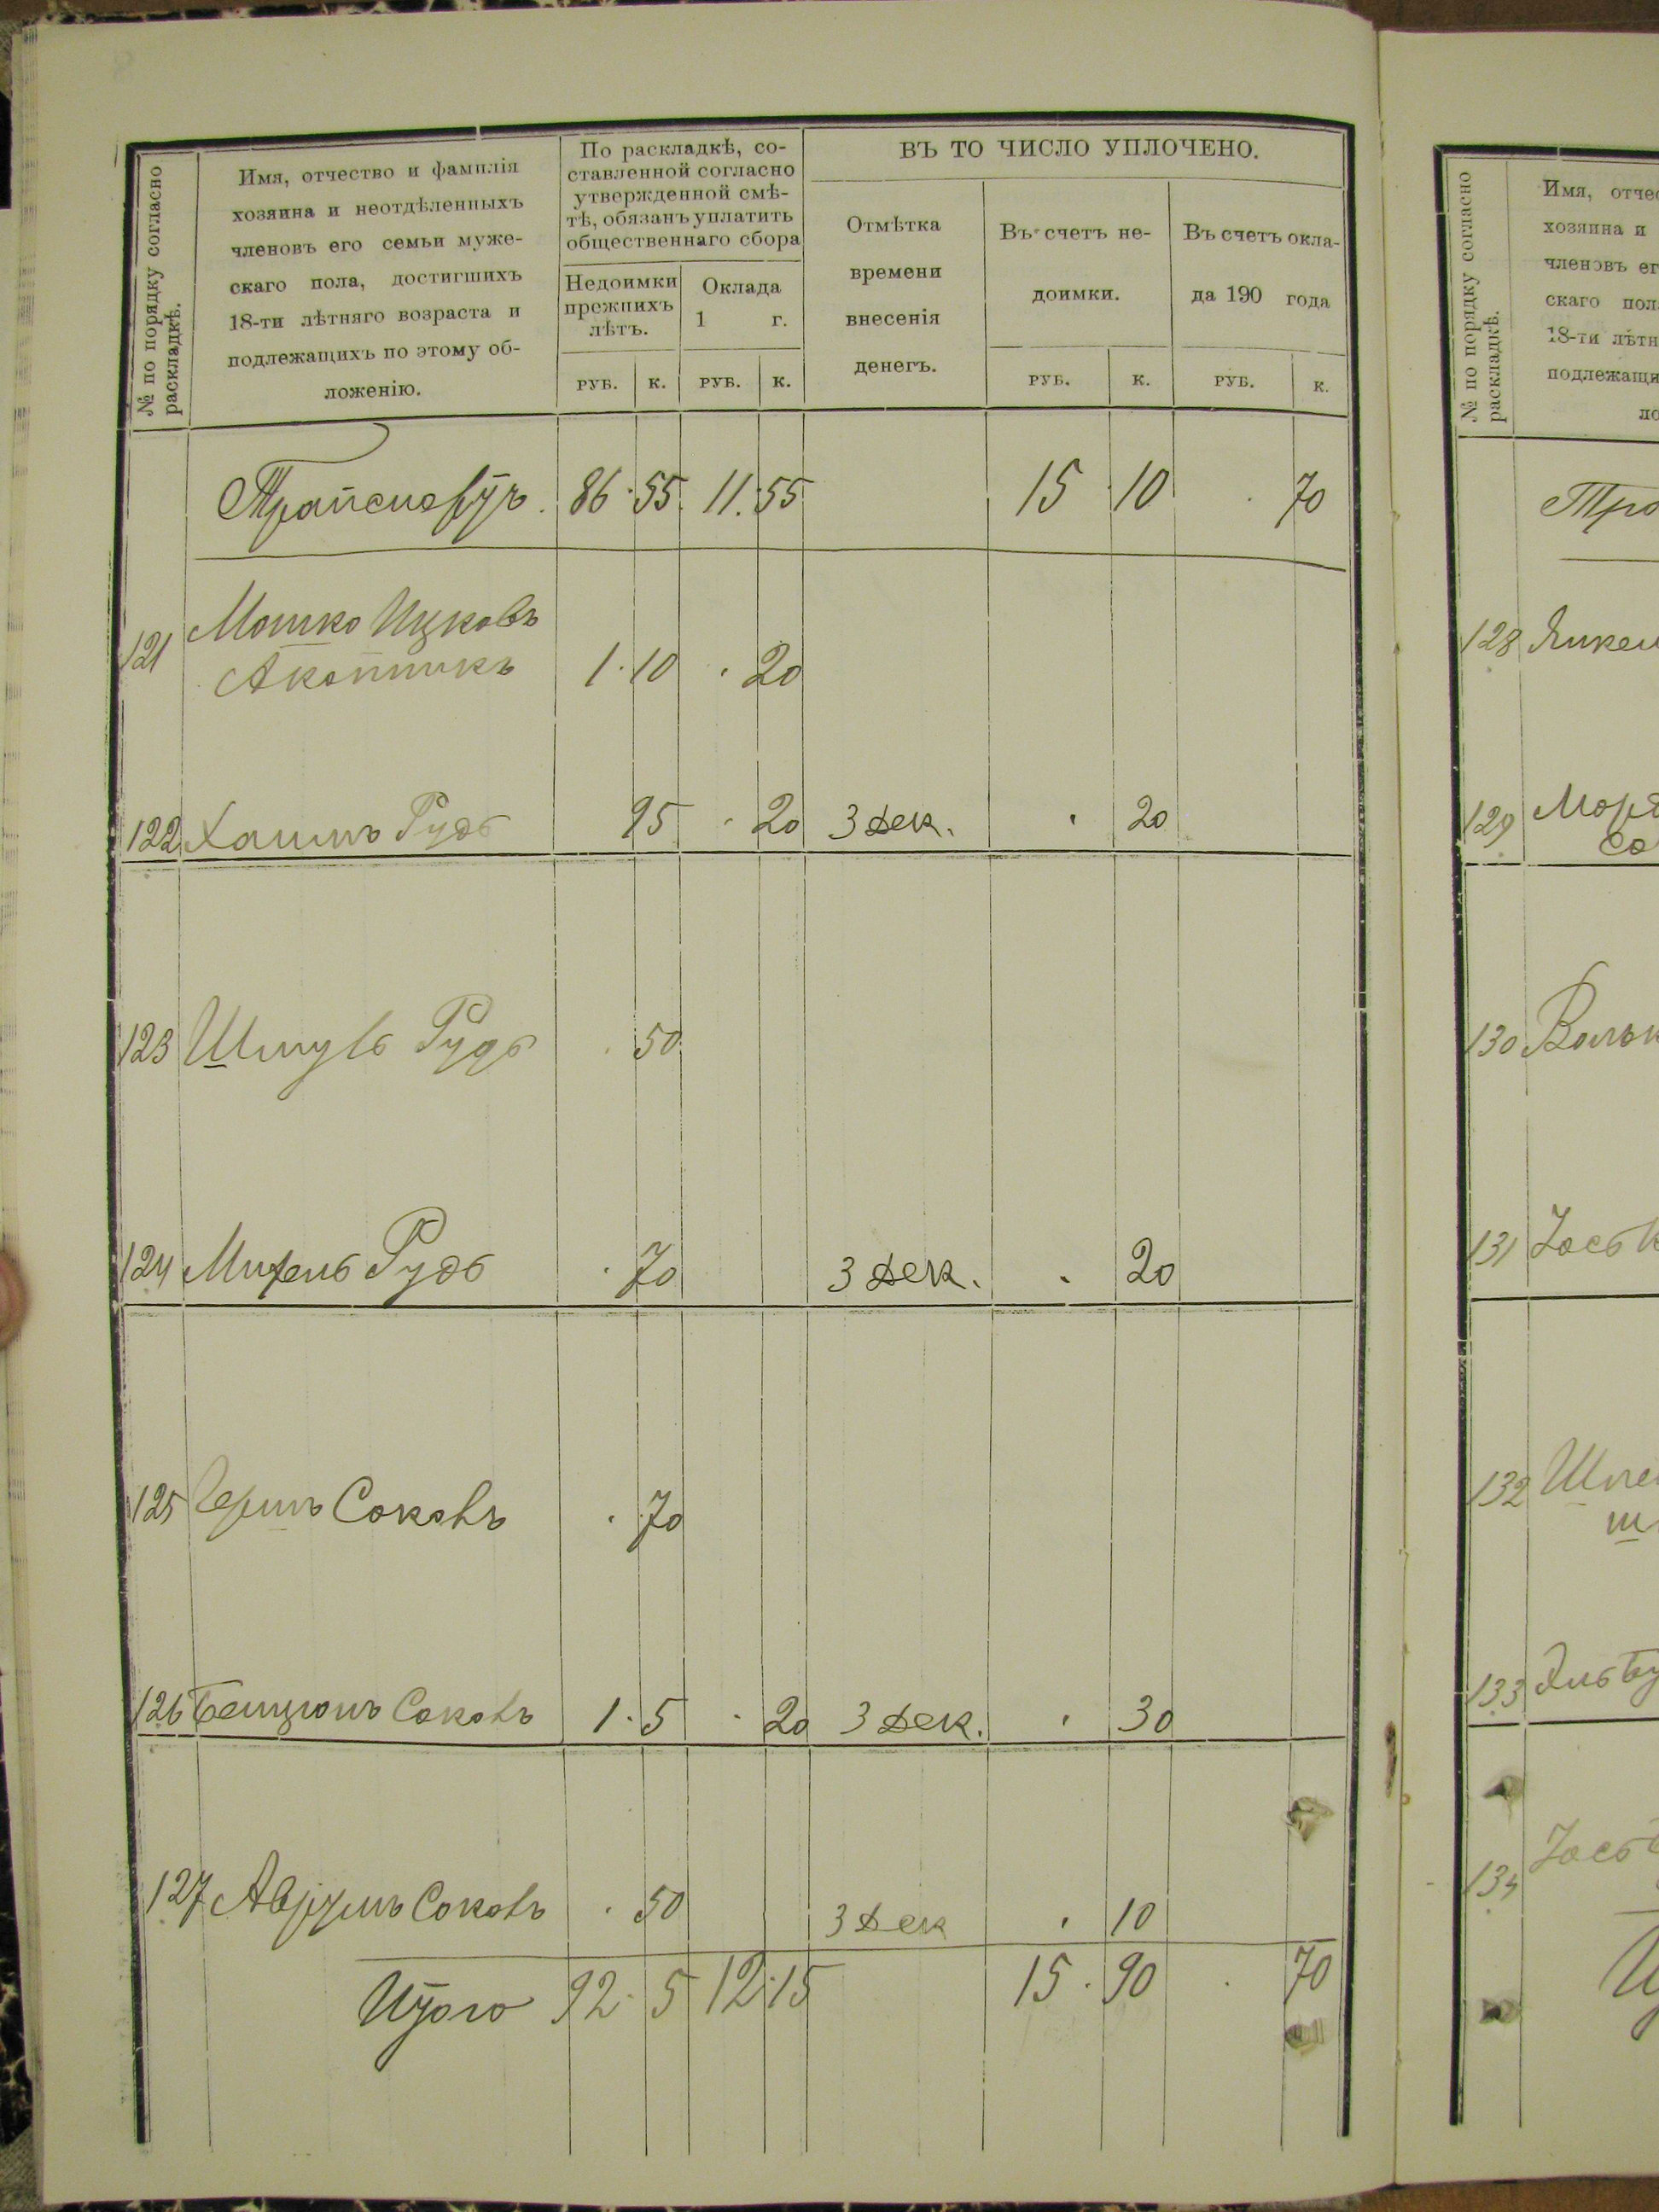 № по порядку согласно
раскладкѣ.
Имя, отчество и фамилія
хозяина и неотдѣленныхъ
членовъ его семьи муже-
скаго пола, достигшихъ
18-ти лѣтняго возраста и
подлежащихъ по этому об-
ложенію.
По раскладкѣ, со-
ставленной согласно
утвержденной смѣ-
тѣ, обязанъ уплатить
общественнаго сбора
Недоимки
прежнихъ
лѣтъ.
РУБ. К.
Оклада
1 г.
РУБ. К.
ВЪ ТО ЧИСЛО УПЛОЧЕНО.
Отмѣтка
времени
внесенія
денегъ.
Въ счетъ не-
доимки.
РУБ. К.
Въ счетъ окла-
да 190 года
РУБ. К.
Транспортъ. 86.55. 11.55 15 10 . 70
121 Мошко Ицковъ
1.10 . 20
122 Хаимъ Рудь 95 . 20 3 дек. . 20
123 Шмуль Рудь . 50
124 Михель Рудь . 70 3 дек. . 20
125 Герш Соколъ . 70
126 Бенціонъ Соколъ 1.5 . 20 3 дек. . 30
127 Аврумъ Соколъ . 50 3 дек . 10
Итого 92.5 12.15 15.90 . 70
№ по порядку согласно
раскладкѣ.
Имя, отчес
хозяина и
членовъ ег
скаго пола
18-ти лѣтн
подлежащи
ло
Тра
128 Янкел
129
130 Вольк
131 Іось
132
133
134 Іось